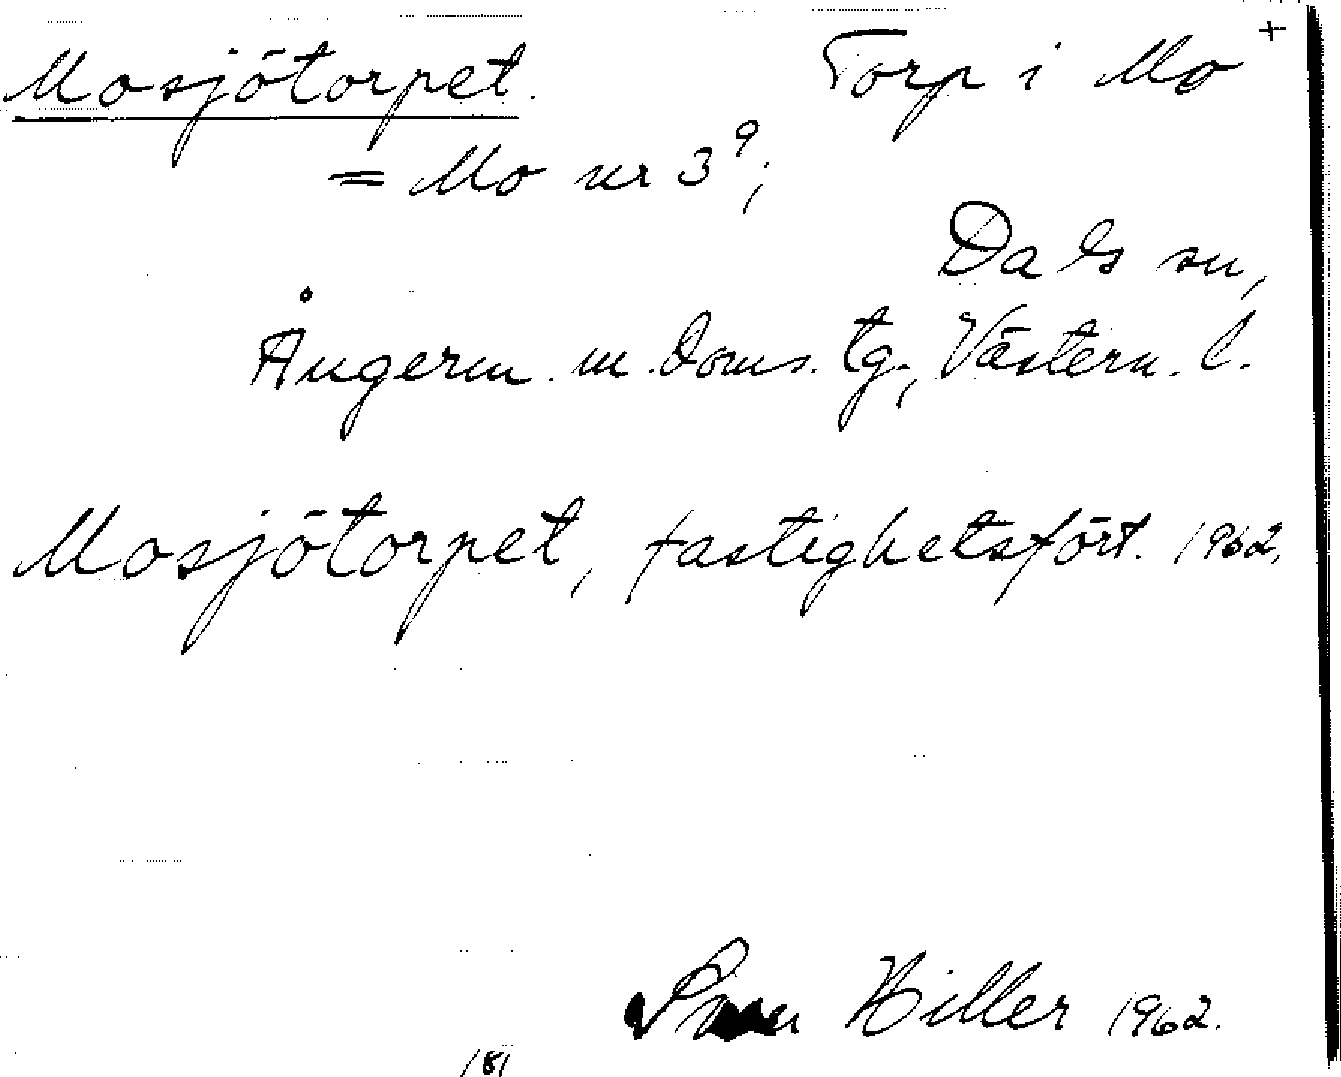 Mosjötorpet. Torp i Mo +
= Mo nr 3⁹;
Dals sn,
Ångerm. m. doms. tg., Västern. l.
Mosjötorpet, fastighetsfört. 1962,
Hiller 1962.
181